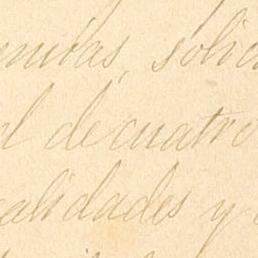 enitas, solic
l de cuatro
alidades y